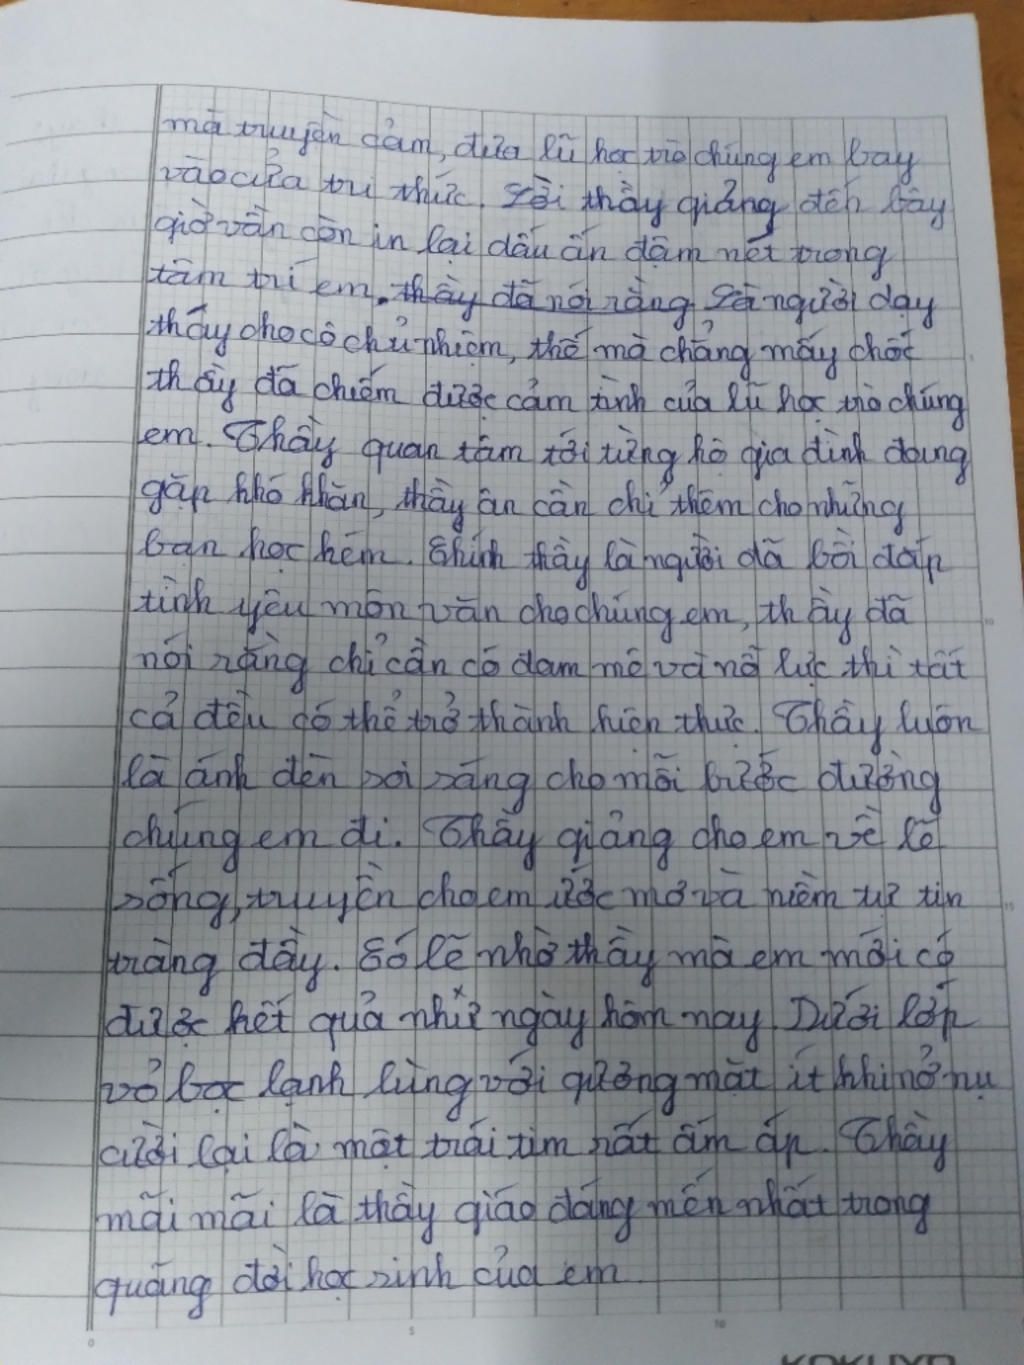 mà truyền cảm, đưa lũ học trò chúng em bay
vào cửa tri thức. Lời thầy giảng đến bây
giờ vẫn còn in lại dấu ấn đậm nét trong
tâm trí em. thầy đã nói rằng Là người dạy
thấy cho cô chủ nhiệm, thế mà chẳng mấy chốc
thầy đã chiếm được cảm tình của lũ học trò chúng
em. Thầy quan tâm tới từng hộ gia đình đang
gặp khó khăn, thầy ân cần chỉ thêm cho những
bạn học kém. Chính thầy là người đã bồi đắp
tình yêu môn văn cho chúng em, thầy đã
nói rằng chỉ cần có đam mê và nỗ lực thì tất
cả đều có thể trở thành hiện thực. Thầy luôn
là ánh đèn soi sáng cho mỗi bước đường
chúng em đi. Thầy giảng cho em về lẽ
sống, truyền cho em ước mơ và niềm tự tin
tràng đầy. Có lẽ nhờ thầy mà em mới có
được kết quả như ngày hôm nay. Dưới lớp
vỏ bọc lạnh lùng với gương mặt ít khi nở nụ
cười lại là một trái tim rất ấm áp. Thầy
mãi mãi là thầy giáo đáng mến nhất trong
quãng đời học sinh của em
0 5 10